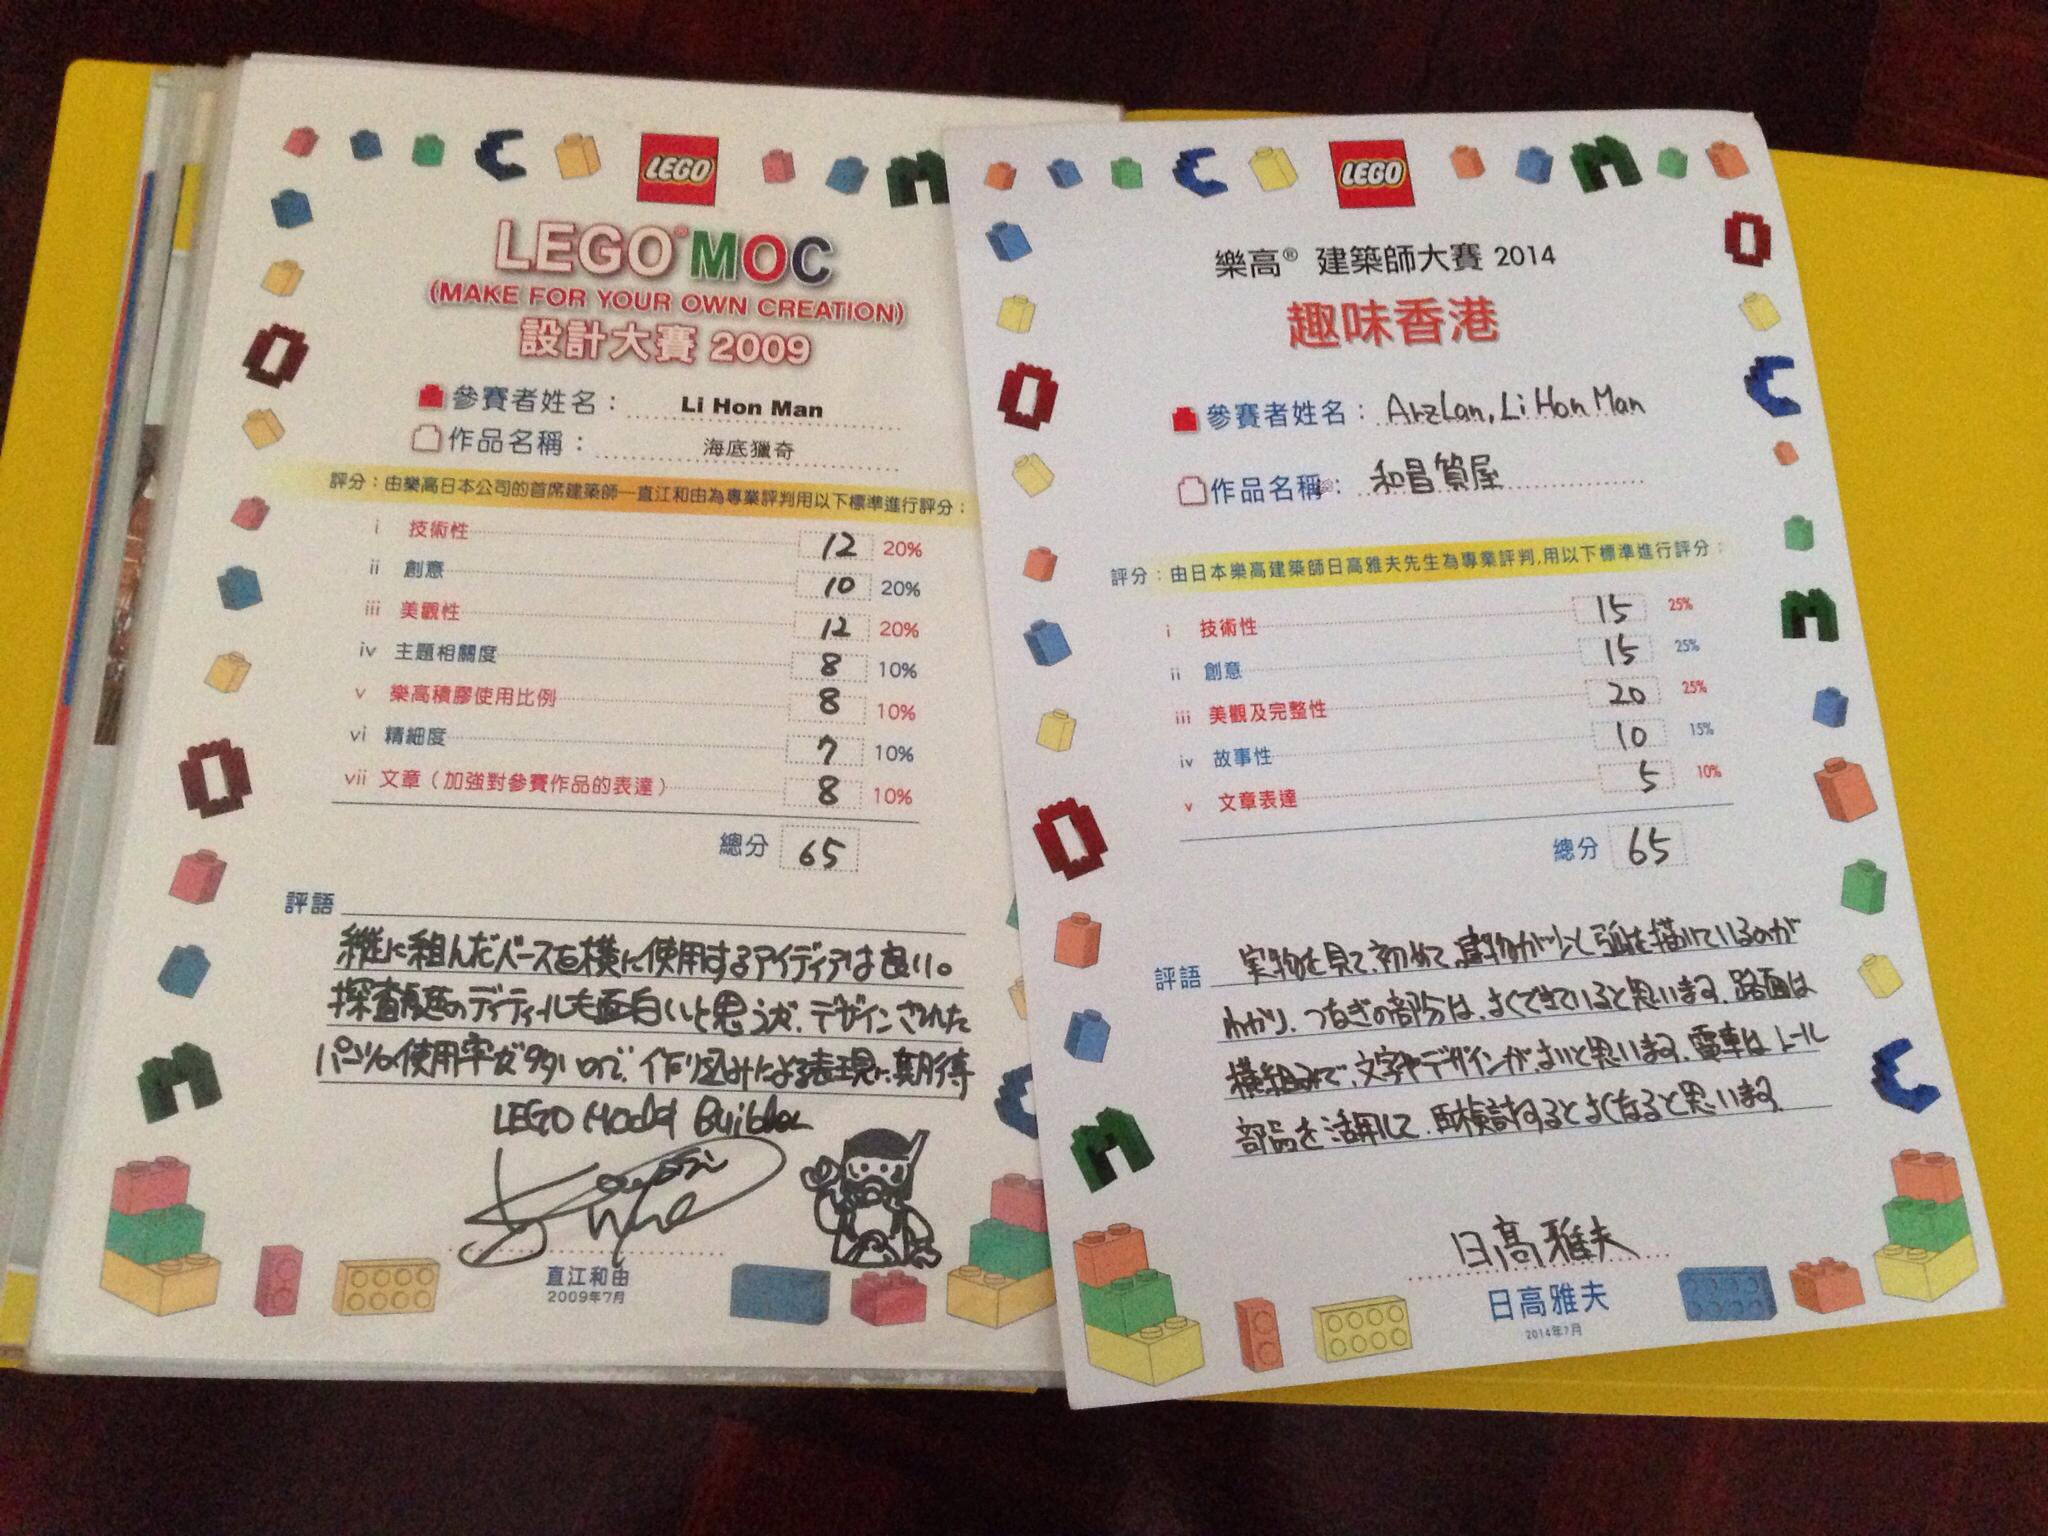 LEGO
LEGO® MOC
(MAKE FOR YOUR OWN CREATION)
設計大賽 2009
參賽者姓名： Li Hon Man
作品名稱： 海底獵奇
評分：由樂高日本公司的首席建築師—直江和由為專業評判用以下標準進行評分：
i 技術性 12 20%
ii 創意 10 20%
iii 美觀性 12 20%
iv 主題相關度 8 10%
v 樂高積膠使用比例 8 10%
vi 精細度 7 10%
vii 文章（加強對參賽作品的表達） 8 10%
總分 65
評語
縦に組んだベースを横に使用するアイディアは良い。
探査艇のディティールも面白いと思うが、デザインされた
パーツの使用率が多いので、作り込みによる表現に期待
LEGO Model Builder
直江和由
2009年7月
LEGO
樂高® 建築師大賽 2014
趣味香港
參賽者姓名： ArzLan, Li Hon Man
作品名稱： 和昌質屋
評分：由日本樂高建築師日高雅夫先生為專業評判,用以下標準進行評分：
i 技術性 15 25%
ii 創意 15 25%
iii 美觀及完整性 20 25%
iv 故事性 10 15%
v 文章表達 5 10%
總分 65
評語 実物を見て、初めて、建物が少しと弧を描いているのが
わかり、つなぎの部分は、よくできていると思います。路面は
横組みで、文字やデザインが、よいと思います。電車はレール
部品を活用して、再検討するとよくなると思います。
日高雅夫
日高雅夫
2014年7月